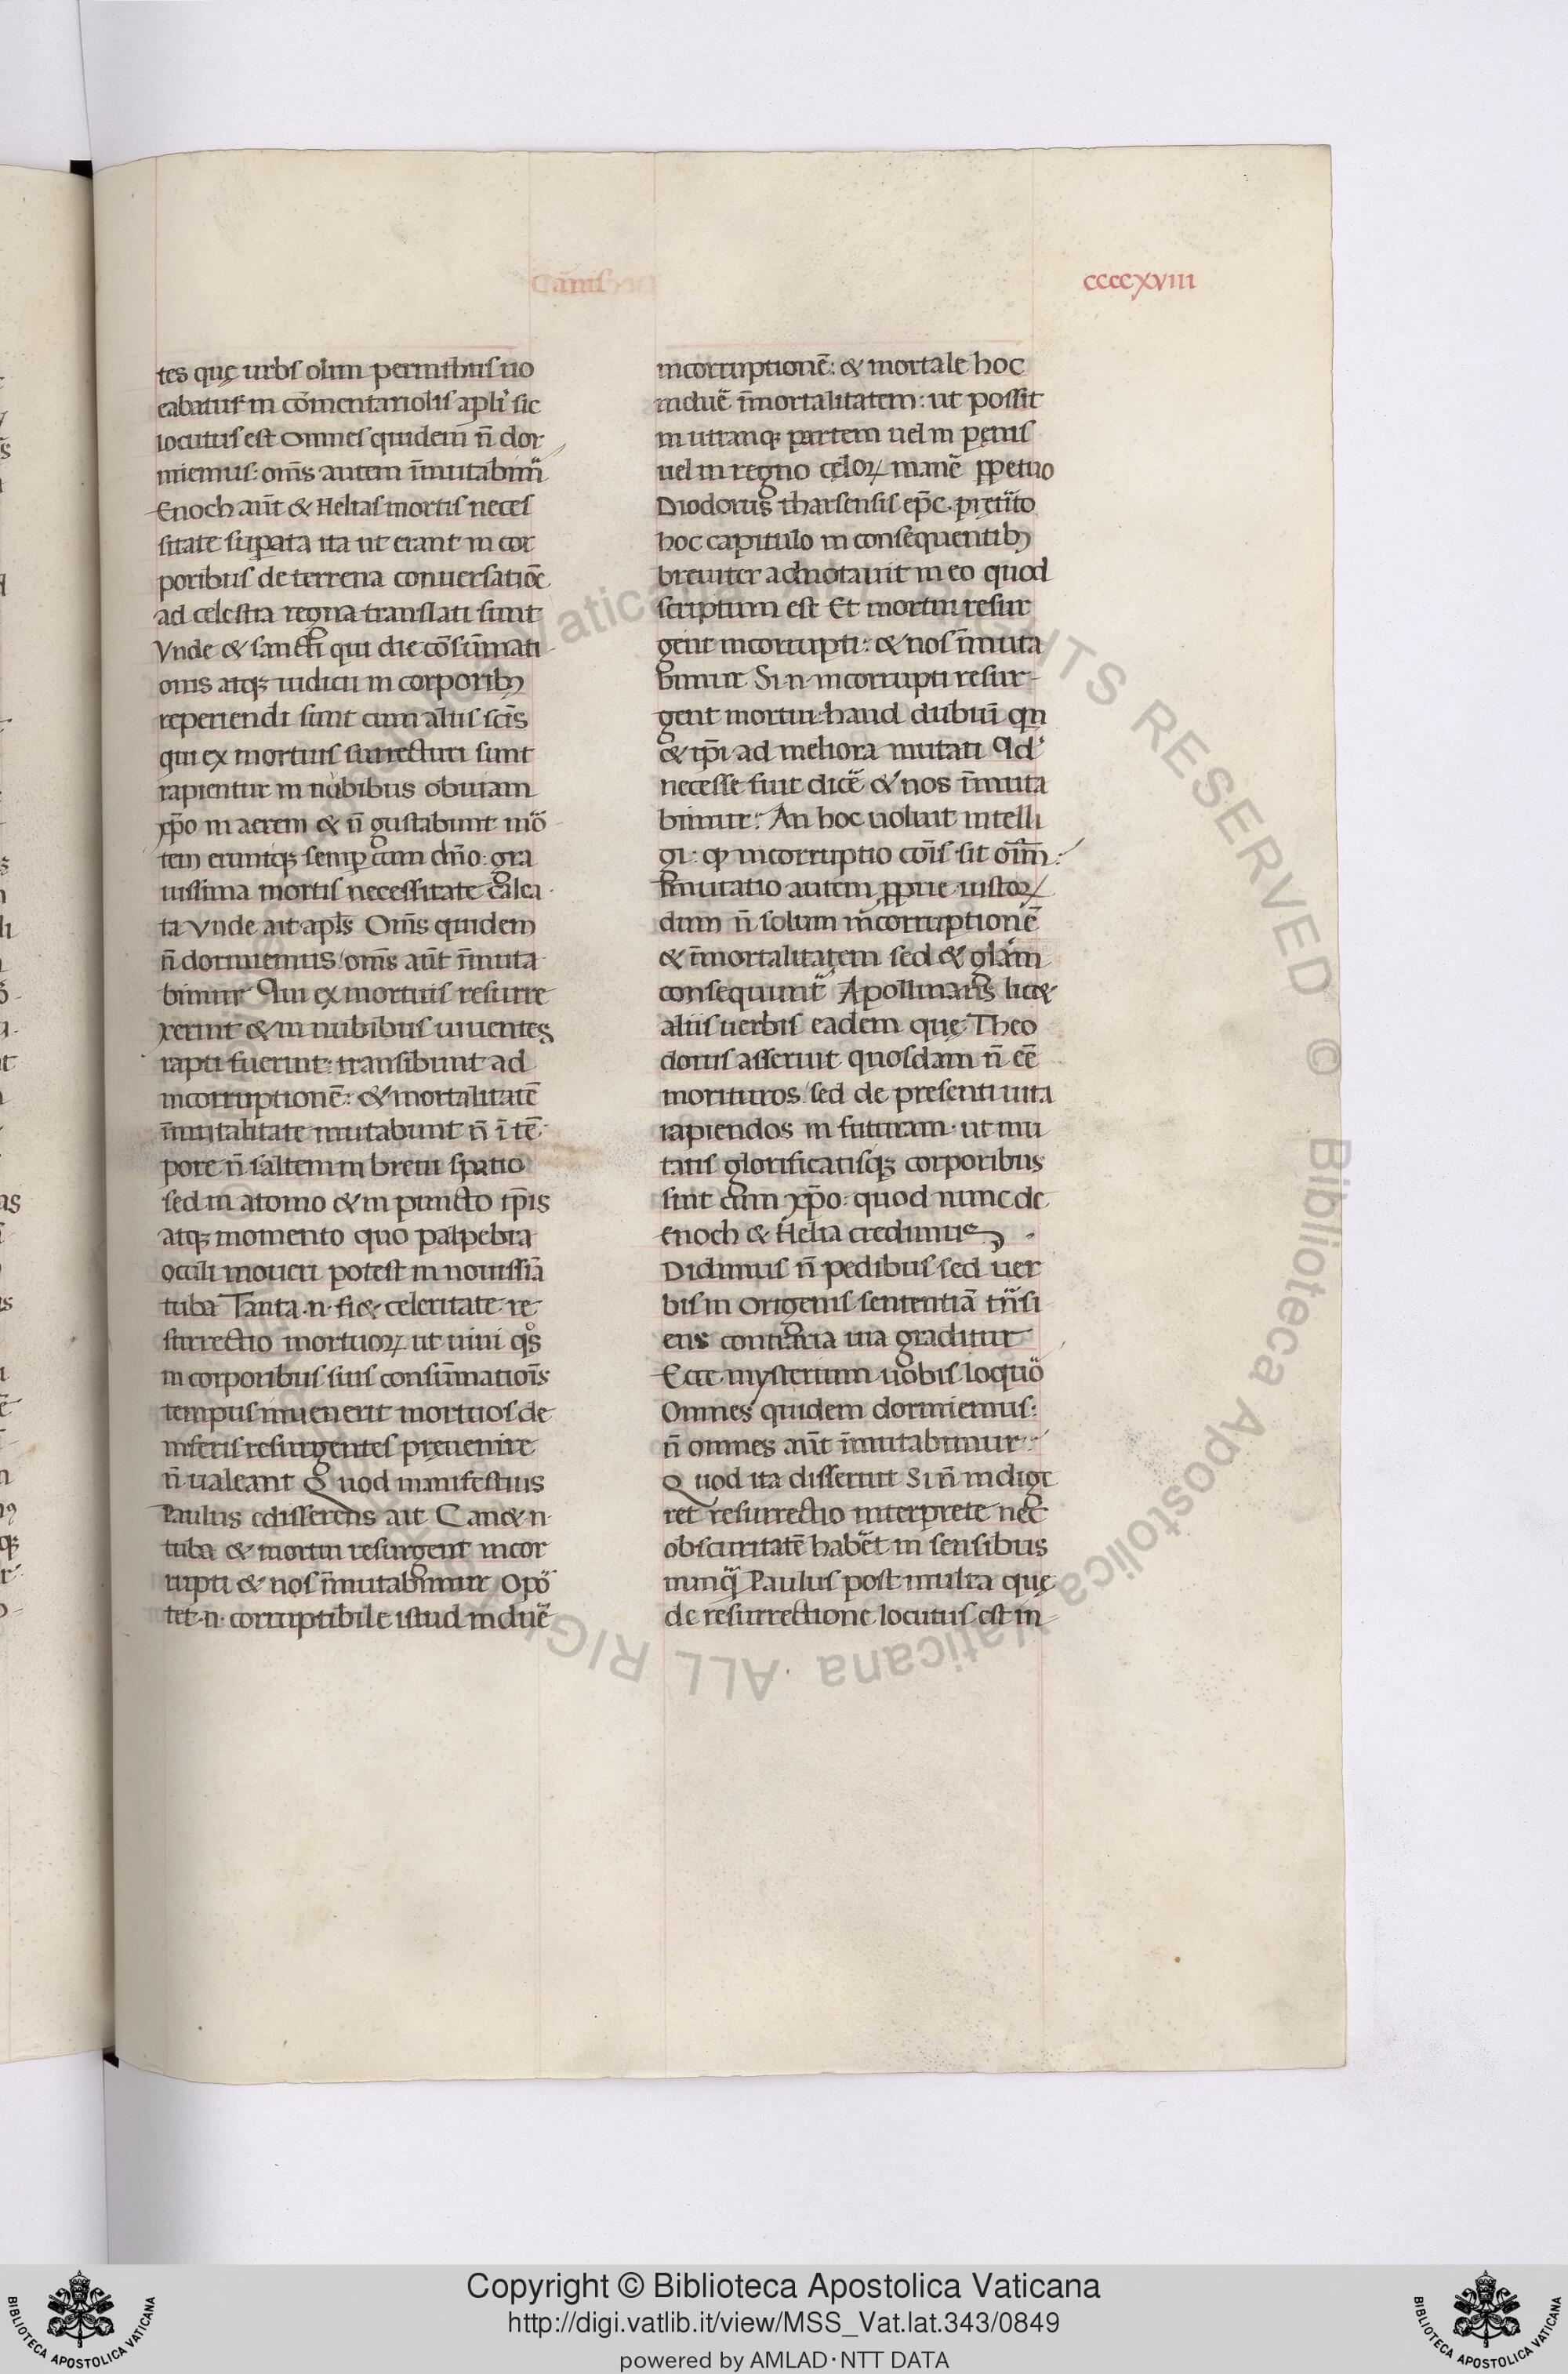 ccccxviii
tes quę urbs olim perinthus uo
cabatur in cōmentariolis apl'i sic
locutus est Omnes quidem n̄ dor
miemus: om̄s autem īmutabimr̄
Enoch aūt & Helias mortis neces
sitate supata ita ut erant in cor
poribus de terrena conuersatiōe
ad celestia regna translati sunt
Vnde & sancti qui die cōsūmati
onis atqȝ iudicii in corporibȝ
reperiendi sunt cum aliis sc̄is
qui ex mortuis surrecturi sunt
rapientur in nubibus obuiam
xp̄o in aerem & n̄ gustabunt mō
tem eruntqȝ semp cum dn̄o: gra
uissima mortis necessitate calca
ta Vnde ait apls̄ Om̄s quidem
n̄ dormiemus / om̄s aūt īmuta
bimur Qui ex mortuis resurre
xerint & in nubibus uiuentes
rapti fuerint: transibunt ad
incorruptionē: & mortalitatē
īmortalitate mutabunt n̄ ī tē
pore n̄ saltem in breui spatio
sed in atomo & in puncto tp̄is
atqȝ momento quo palpebra
oculi moueri potest in nouissīa
tuba Tanta .n. fi& celeritate re
surrectio mortuoꝝ ut uiui qos
in corporibus suis consūmatiōis
tempus inuenerit mortuos de
inferis resurgentes pręuenire
n̄ ualeant Quod manifestius
Paulus edisserens ait Can& .n.
tuba & mortui resurgent incor
rupti & nos īmutabimur Opō
tet .n. corruptibile istud induē
incorruptionē: & mortale hoc
induē īmortalitatem: ut possit
in utranqȝ partem uel in pęnis
uel in regno cęloꝝ manē ꝑpetuo
Diodorus tharsensis ep̄c. pręt̄ito
hoc capitulo in consequentibȝ
breuiter adnotauit in eo quod
scriptum est Et mortui resur
gent incorrupti: & nos īmuta
bimur Si .n. incorrupti resur
gent mortui: haud dubiū qn
& ip̄i ad meliora mutati Qd
necesse fuit dicē & nos īmuta
bimur: An hoc uoluit intelli
gi: ꝙ incorruptio cōis sit oīm:
īmutatio autem ꝓprie iustoꝝ
dum n̄ solum incorruptionē
& īmortalitatem sed & glām
consequunt̄ Apollinaris lic&
aliis uerbis eadem quę Theo
dorus asseruit quosdam n̄ eē
morituros / sed de presenti uita
rapiendos in futuram. ut mu
tatis glorificatisqȝ corporibus
sint cum xp̄o: quod nunc de
Enoch & Helia credimus
Didimus n̄ pedibus sed uer
bis in Origenis sententiā trn̄si
ens contraria uia graditur
Ecce mysterium uobis loquō
Omnes quidem dormiemus:
n̄ omnes aūt īmutabimur:
Quod ita disseruit Si n̄ indige
ret resurrectio interprete nec
obscuritatē habēt in sensibus
nunq̄ Paulus post multa quę
de resurrectione locutus est in
Copyright © Biblioteca Apostolica Vaticana
http://digi.vatlib.it/view/MSS_Vat.lat.343/0849
powered by AMLAD·NTT DATA